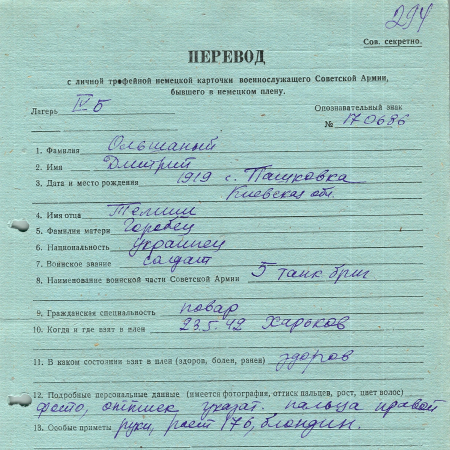 294
Сов. секретно.
ПЕРЕВОД
с личной трофейной немецкой карточки военнослужащего Советской Армии,
бывшего в немецком плену.
Лагерь IV Б Опознавательный знак
№ 170686
1. Фамилия Ольшаный
2. Имя Дмитрий
3. Дата и место рождения 1919 с. Пашковка
Киевская обл.
4. Имя отца
5. Фамилия матери Горобец
6. Национальность Украинец
7. Воинское звание солдат
8. Наименование воинской части Советской Армии 5 танк бриг
9. Гражданская специальность повар
10. Когда и где взят в плен 23.5.42 Харьков
11. В каком состоянии взят в плен (здоров, болен, ранен) здоров
12. Подробные персональные данные (имеется фотография, оттиск пальцев, рост, цвет волос)
фото, оттиск указат. пальца правой
13. Особые приметы руки, рост 176, блондин.